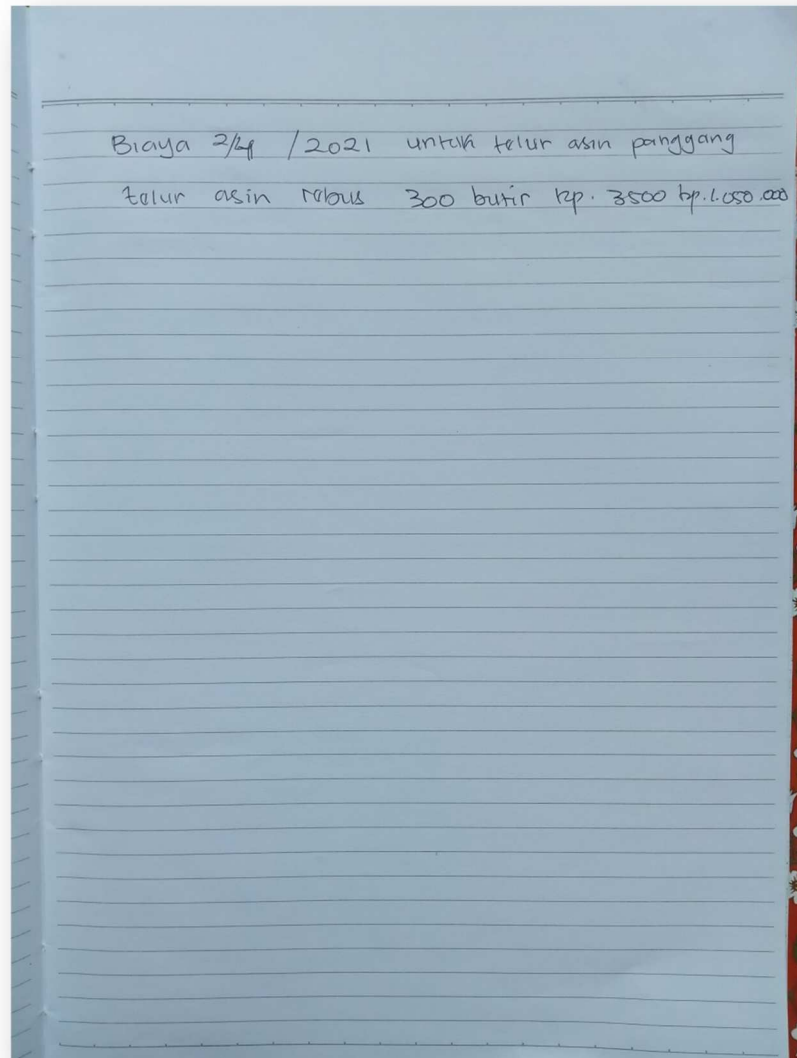 Biaya 2/4 /2021 untuk telur asin panggang
telur asin rebus 300 butir Rp. 3500 Rp.1.050.000